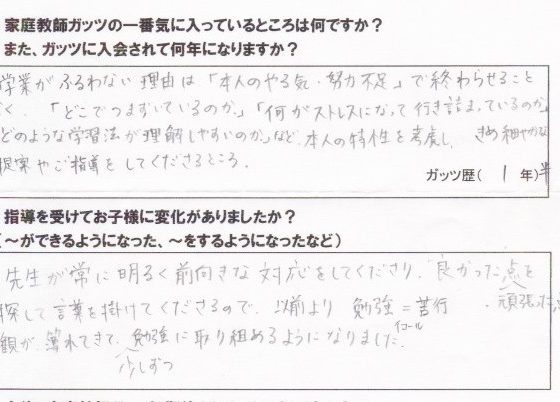 家庭教師ガッツの一番気に入っているところは何ですか?
また、ガッツに入会されて何年になりますか?
学業がふるわない理由は「本人のやる気・努力不足」で終わらせること
く、「どこでつまずいているのか」「何がストレスになって行き詰まっているのか」
どのような学習法が理解しやすいのか」など、本人の特性を考慮し、きめ細やかな
提案やご指導をしてくださるところ。
ガッツ歴( 1 年)半
指導を受けてお子様に変化がありましたか?
(～ができるようになった、～をするようになったなど)
先生が常に明るく前向きな対応をしてくださり、「良かった点を
・頑張った
探して言葉を掛けてくださるので、以前より 勉強=苦行
イコール
観が、薄れてきて、勉強に取り組めるようになりました。
少しずつ